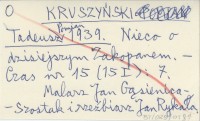 O KRUSZYŃSKI
Tadeusz 1939. Nieco o
dzisiejszym Zakopanem. –
Czas nr 15 (15 I) s. 7.
Malarz Jan Gąsienica-
– Szostak i rzeźbiarz Jan Rykała